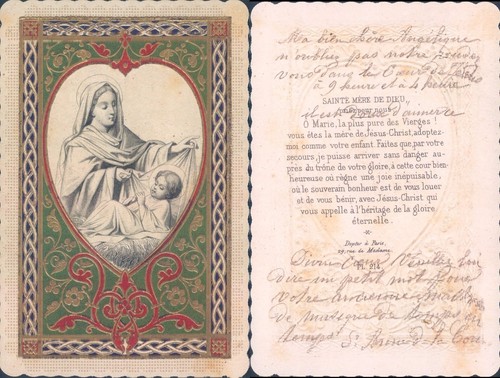 Ma bien chère Angélique
n'oubliez pas notre rendez
vous dans le Cœur de Jésus
à 9 heure et à 4 heure
SAINTE MÈRE DE DIEU,
il est doux d'aimer
O Marie, la plus pure des Vierges!
vous êtes la mère de Jésus-Christ, adoptez-
moi comme votre enfant. Faites que, par votre
secours, je puisse arriver sans danger au-
près du trône de votre gloire, à cette cour bien-
heureuse où règne une joie inépuisable,
où le souverain bonheur est de vous louer
et de vous bénir, avec Jésus-Christ qui
vous appelle à l'héritage de la gloire
éternelle.
Dopter à Paris,
rue de Madame
Pl. 214
Divin Cœur Veuillez lui
dire un petit mot pour
votre
de musique de temps en
temps. Sr